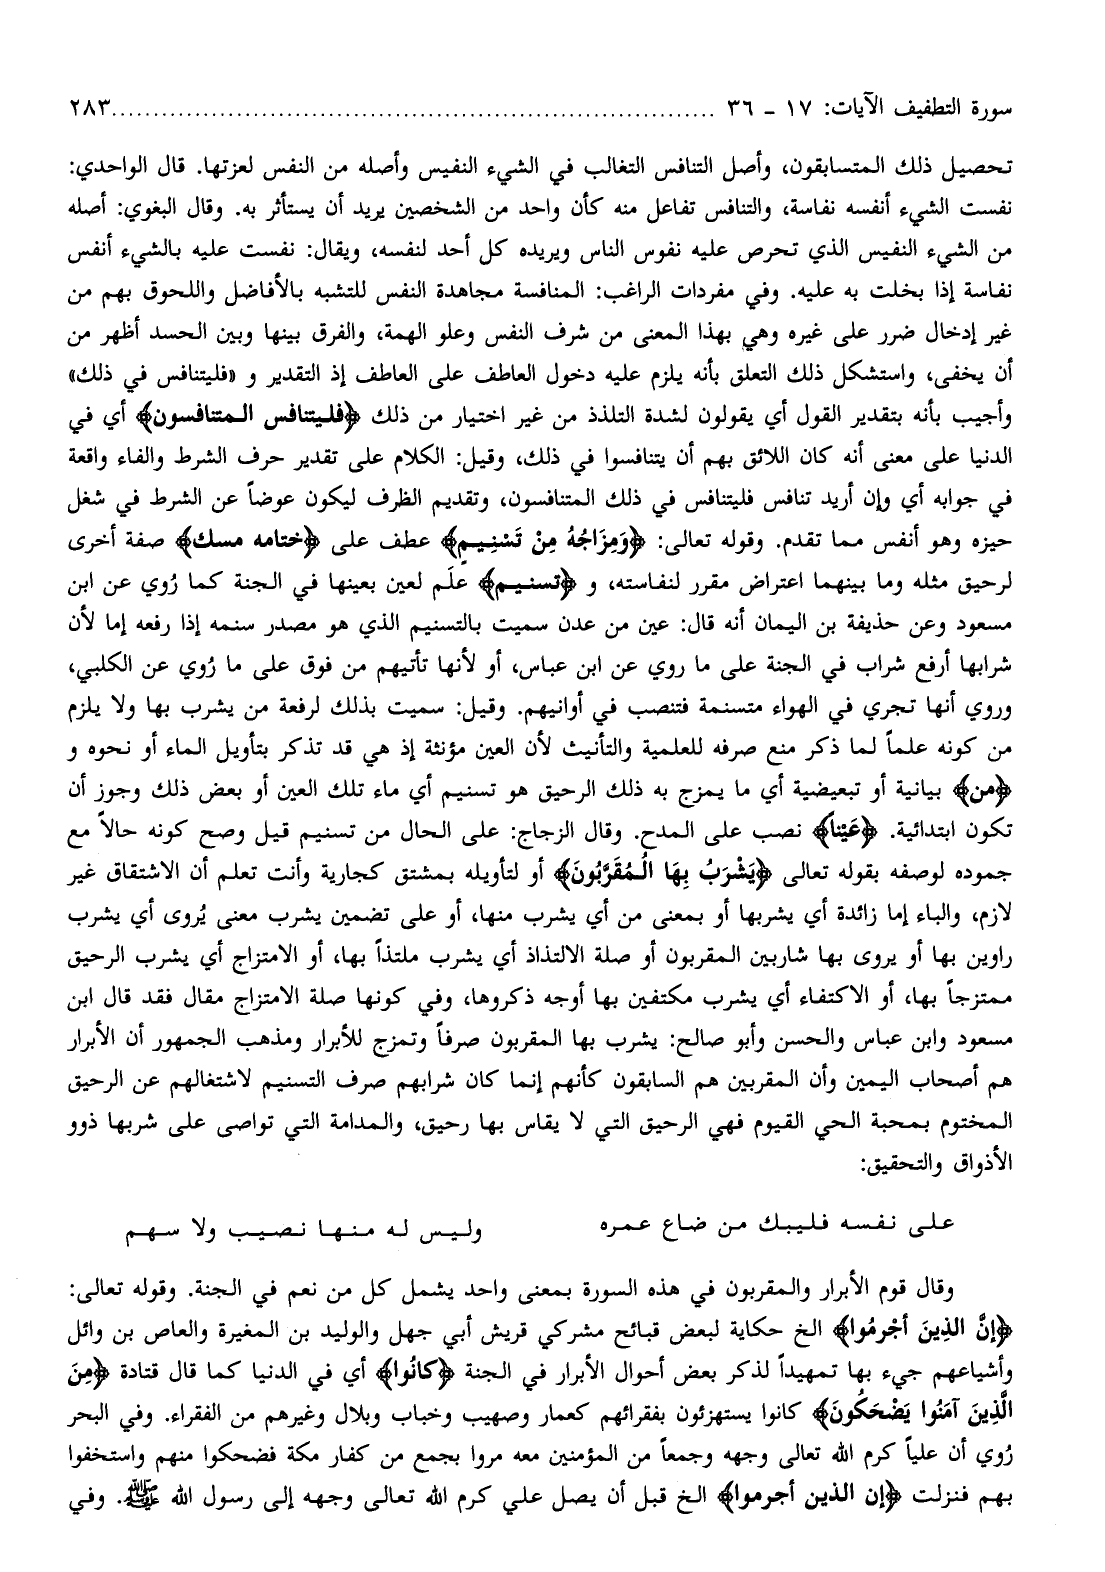 سورة التطفيف الآيات: ١٧ - ٣٦ ........................................................................ ٢٨٣
تحصيل ذلك المتسابقون، وأصل التنافس التغالب في الشيء النفيس وأصله من النفس لعزتها. قال الواحدي:
نفست الشيء أنفسه نفاسة، والتنافس تفاعل منه كأن واحد من الشخصين يريد أن يستأثر به. وقال البغوي: أصله
من الشيء النفيس الذي تحرص عليه نفوس الناس ويريده كل أحد لنفسه، ويقال: نفست عليه بالشيء أنفس
نفاسة إذا بخلت به عليه. وفي مفردات الراغب: المنافسة مجاهدة النفس للتشبه بالأفاضل واللحوق بهم من
غير إدخال ضرر على غيره وهي بهذا المعنى من شرف النفس وعلو الهمة، والفرق بينها وبين الحسد أظهر من
أن يخفى، واستشكل ذلك التعلق بأنه يلزم عليه دخول العاطف على العاطف إذ التقدير و «فليتنافس في ذلك»
وأجيب بأنه بتقدير القول أي يقولون لشدة التلذذ من غير اختيار من ذلك ﴿فليتنافس المتنافسون﴾ أي في
الدنيا على معنى أنه كان اللائق بهم أن يتنافسوا في ذلك، وقيل: الكلام على تقدير حرف الشرط والفاء واقعة
في جوابه أي وإن أريد تنافس فليتنافس في ذلك المتنافسون، وتقديم الظرف ليكون عوضاً عن الشرط في شغل
حيزه وهو أنفس مما تقدم. وقوله تعالى: ﴿وَمِزَاجُهُ مِنْ تَسْنِيمٍ﴾ عطف على ﴿ختامه مسك﴾ صفة أخرى
لرحيق مثله وما بينهما اعتراض مقرر لنفاسته، و ﴿تسنيم﴾ علَم لعين بعينها في الجنة كما رُوي عن ابن
مسعود وعن حذيفة بن اليمان أنه قال: عين من عدن سميت بالتسنيم الذي هو مصدر سنمه إذا رفعه إما لأن
شرابها أرفع شراب في الجنة على ما روي عن ابن عباس، أو لأنها تأتيهم من فوق على ما رُوي عن الكلبي،
وروي أنها تجري في الهواء متسنمة فتنصب في أوانيهم. وقيل: سميت بذلك لرفعة من يشرب بها ولا يلزم
من كونه علماً لما ذكر منع صرفه للعلمية والتأنيث لأن العين مؤنثة إذ هي قد تذكر بتأويل الماء أو نحوه و
﴿من﴾ بيانية أو تبعيضية أي ما يمزج به ذلك الرحيق هو تسنيم أي ماء تلك العين أو بعض ذلك وجوز أن
تكون ابتدائية. ﴿عَيْناً﴾ نصب على المدح. وقال الزجاج: على الحال من تسنيم قيل وصح كونه حالاً مع
جموده لوصفه بقوله تعالى ﴿يَشْرَبُ بِهَا الْمُقَرَّبُونَ﴾ أو لتأويله بمشتق كجارية وأنت تعلم أن الاشتقاق غير
لازم، والباء إما زائدة أي يشربها أو بمعنى من أي يشرب منها، أو على تضمين يشرب معنى يُروى أي يشرب
راوين بها أو يروى بها شاربين المقربون أو صلة الالتذاذ أي يشرب ملتذاً بها، أو الامتزاج أي يشرب الرحيق
ممتزجاً بها، أو الاكتفاء أي يشرب مكتفين بها أوجه ذكروها، وفي كونها صلة الامتزاج مقال فقد قال ابن
مسعود وابن عباس والحسن وأبو صالح: يشرب بها المقربون صرفاً وتمزج للأبرار ومذهب الجمهور أن الأبرار
هم أصحاب اليمين وأن المقربين هم السابقون كأنهم إنما كان شرابهم صرف التسنيم لاشتغالهم عن الرحيق
المختوم بمحبة الحي القيوم فهي الرحيق التي لا يقاس بها رحيق، والمدامة التي تواصى على شربها ذوو
الأذواق والتحقيق:
على نفسه فليبك من ضاع عمره وليس له منها نصيب ولا سهم
وقال قوم الأبرار والمقربون في هذه السورة بمعنى واحد يشمل كل من نعم في الجنة. وقوله تعالى:
﴿إنَّ الذِينَ أجْرمُوا﴾ الخ حكاية لبعض قبائح مشركي قريش أبي جهل والوليد بن المغيرة والعاص بن وائل
وأشياعهم جيء بها تمهيداً لذكر بعض أحوال الأبرار في الجنة ﴿كانُوا﴾ أي في الدنيا كما قال قتادة ﴿مِنَ
الَّذِينَ آمَنُوا يَضْحَكُونَ﴾ كانوا يستهزئون بفقرائهم كعمار وصهيب وخباب وبلال وغيرهم من الفقراء. وفي البحر
رُوي أن علياً كرم الله تعالى وجهه وجمعاً من المؤمنين معه مروا بجمع من كفار مكة فضحكوا منهم واستخفوا
بهم فنزلت ﴿إن الذين أجرموا﴾ الخ قبل أن يصل علي كرم الله تعالى وجهه إلى رسول الله ﷺ. وفي